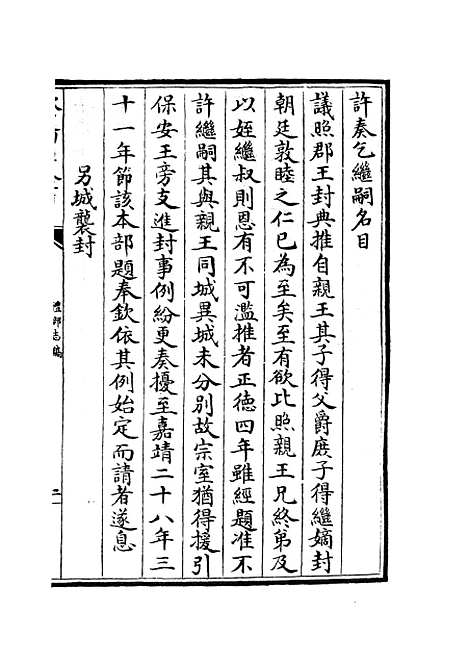 許奏乞繼嗣名目
議照郡王封典推自親王其子得父爵庶子得繼嫡封
朝廷敦睦之仁已為至矣至有欲比照親王兄終弟及
以姪繼叔則恩有不可濫推者正德四年雖經題准不
許繼嗣其與親王同城異城未分別故宗室猶得援引
保安王旁支進封事例紛更奏擾至嘉靖二十八年三
十一年節該本部題奉欽依其例始定而請者遂息
另城襲封
禮部志稿